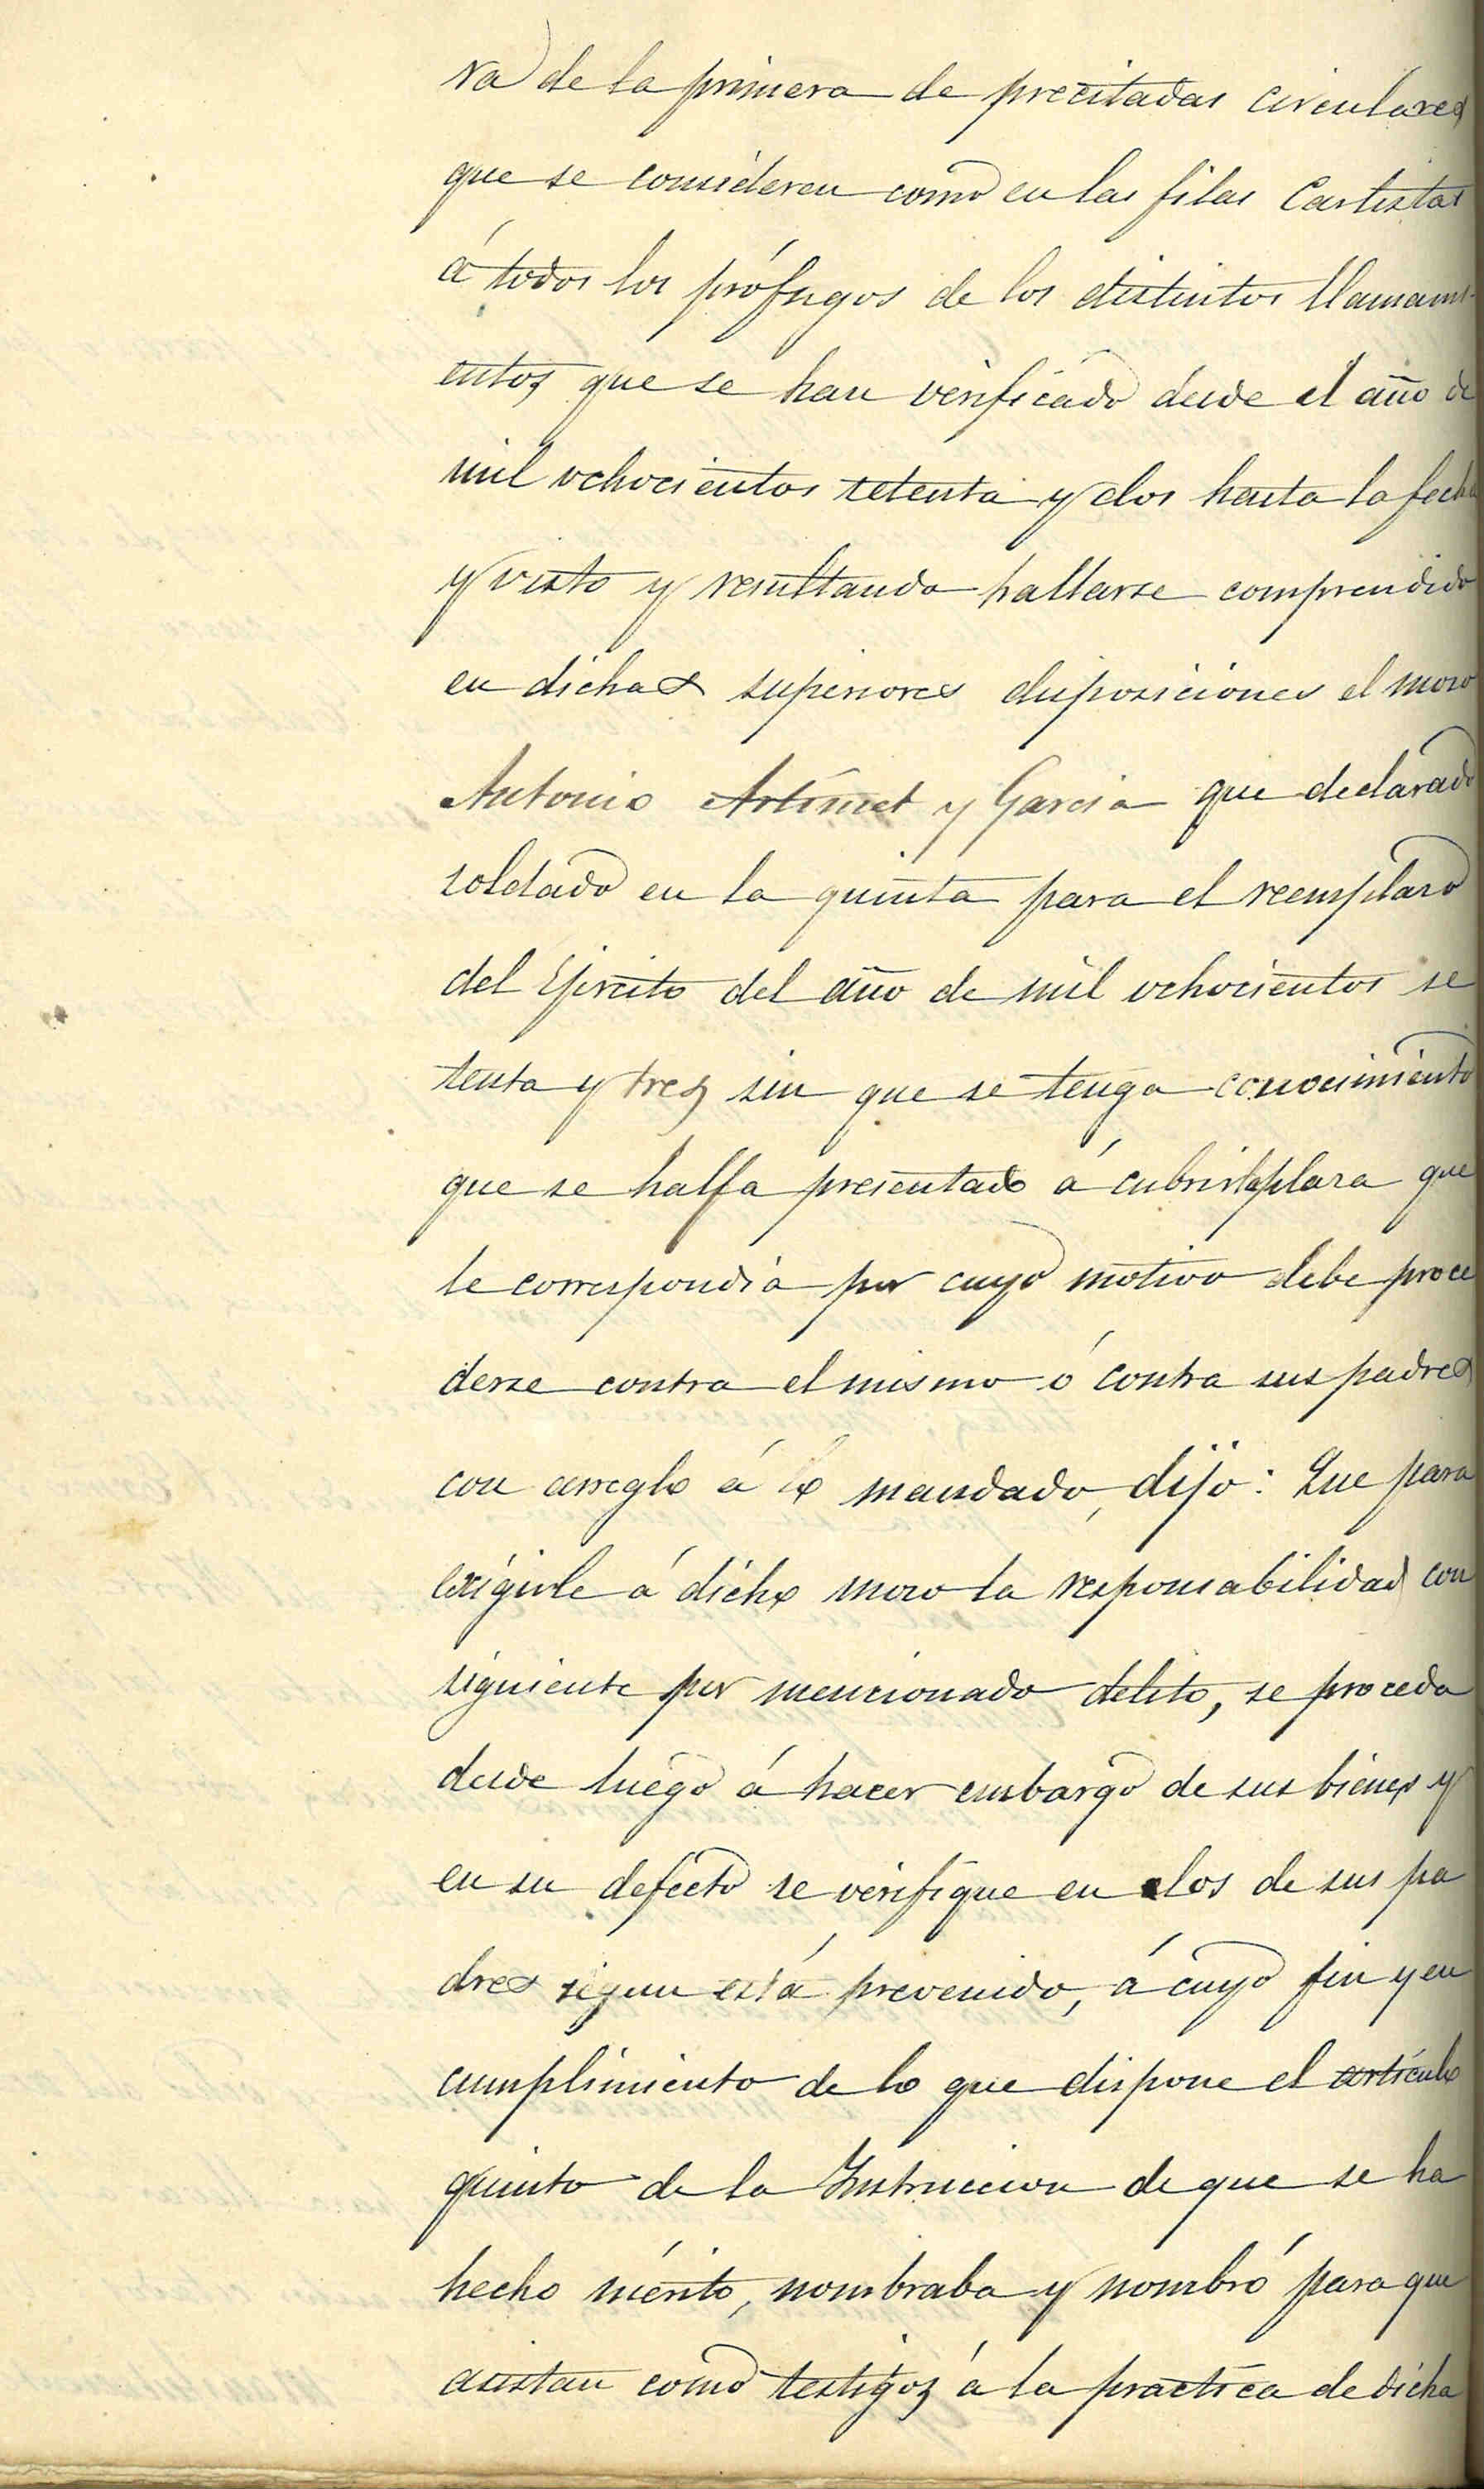 va de la primera de precitadas circulares
que se consideren como en las filas Carlistas
á todos los prófugos de los distintos llamami-
entos que se han verificado desde el año de
mil ochocientos setenta y dos hasta la fecha
y visto y resultando hallarse comprendido
en dichas superiores disposiciones el mozo
Antonio Artimet y Garcia que declarado
soldado en la quinta para el reemplazo
del Ejército del año de mil ochocientos se
tenta y tres sin que se tenga conocimiento
que se halla presentado á cubrir la plaza que
le correspondia por cuyo motivo debe proce
derse contra el mismo ó contra sus padres
con arreglo á lo mandado, dijo: Que para
exigirle á dicho mozo la responsabilidad con
siguiente por mencionado delito, se proceda
desde luego á hacer embargo de sus bienes y
en su defecto se verifique en los de sus pa
dres segun está prevenido, á cuyo fin y en
cumplimiento de lo que dispone el artículo
quinto de la Instruccion de que se ha
hecho mérito, nombraba y nombró para que
asistan como testigos á la practica de dicha